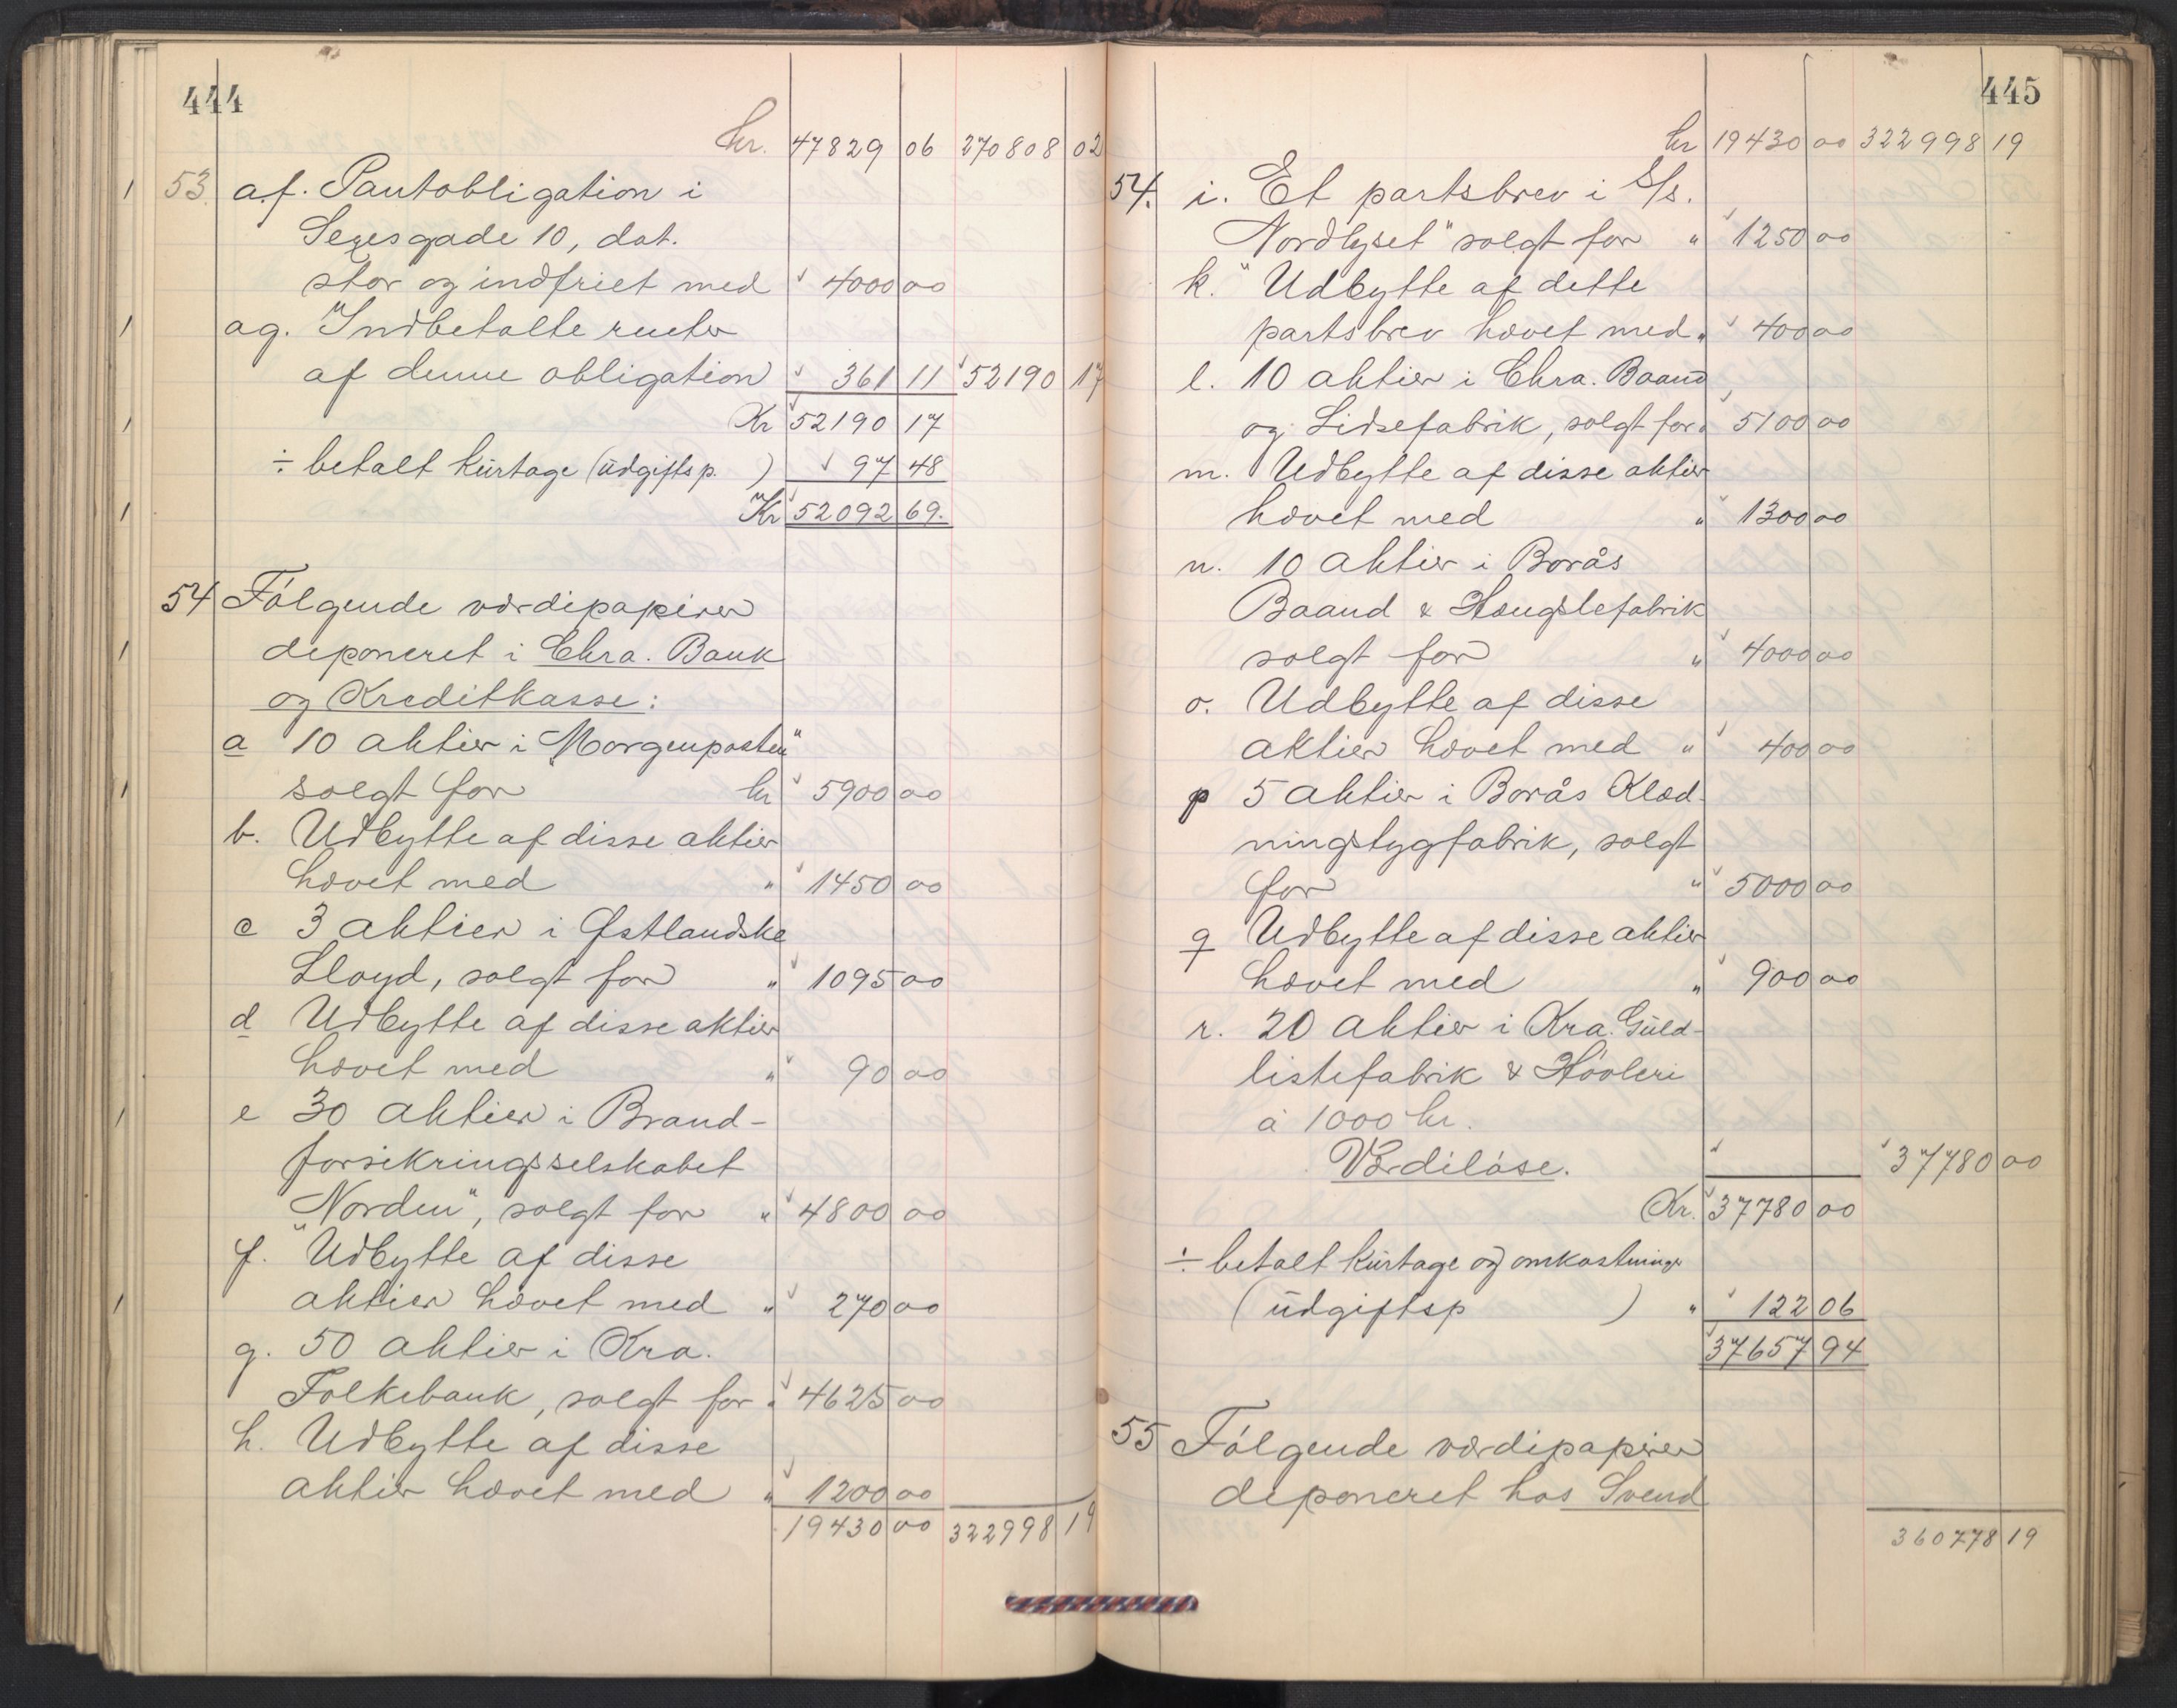 444
kr. 47829 06 270808 02
53. a.f. Pantobligation i
Sexesgade 10, dat.
stor og indfriet med " 4000 00
ag. Indbetalte renter
af denne obligation " 361 11 52190 17
Kr 52190 17
÷ betalt kurtage (udgiftsp. ) 97 48
Kr 52092 69.
54 Følgende værdipapirer
deponeret i Chra. Bank
og Kreditkasse:
a 10 aktier i "Morgenposten"
solgt for kr 5900 00
b. Udbytte af disse aktier
hævet med " 1450 00
c 3 aktier i Østlandske
Lloyd, solgt for " 1095 00
d Udbytte af disse aktier
hævet med " 90 00
e 30 aktier i Brand-
forsikringsselskabet
"Norden", solgt for " 4800 00
f. Udbytte af disse
aktier hævet med " 270 00
g. 50 aktier i Kra.
Folkebank, solgt for " 4625 00
h. Udbytte af disse
aktier hævet med " 1200 00
19430 00 322998 19
445
kr 19430 00 322998 19
54. i. Et partsbrev i S/s.
"Nordlyset" solgt for " 1250 00
k. Udbytte af dette
partsbrev hævet med " 400 00
l. 10 aktier i Chra. Baand
og Lidsefabrik, solgt for " 5100 00
m. Udbytte af disse aktier
hævet med " 1300 00
n. 10 aktier i Borås
Baand & Hængslefabrik
solgt for " 4000 00
o. Udbytte af disse
aktier hævet med " 400 00
p 5 aktier i Borås Klæd-
ningstygfabrik, solgt
for " 5000 00
q Udbytte af disse aktier
hævet med " 900 00
r. 20 aktier i Kra. Guld-
listefabrik & Høvleri
à 1000 kr.
Værdiløse. " 37780 00
Kr. 37780 00
÷ betalt kurtage og omkostninger
(udgiftsp ) " 122 06
37657 94
55 Følgende værdipapirer
deponeret hos Svend
360778 19